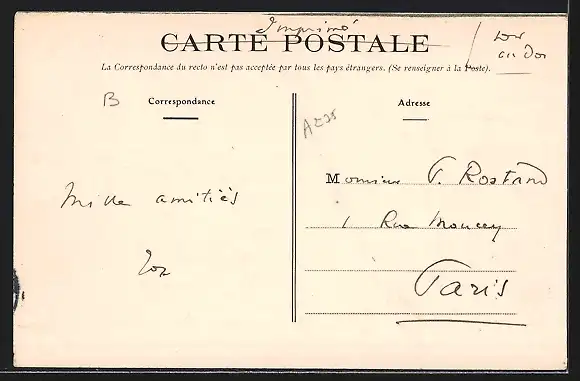 Imprimé
CARTE POSTALE
La Correspondance du recto n'est pas acceptée par tous les pays étrangers. (Se renseigner à la Poste).
B
Correspondance
Adresse
Monsieur T. Rostand
Mille amitiés
1 Rue Moncey
Paris